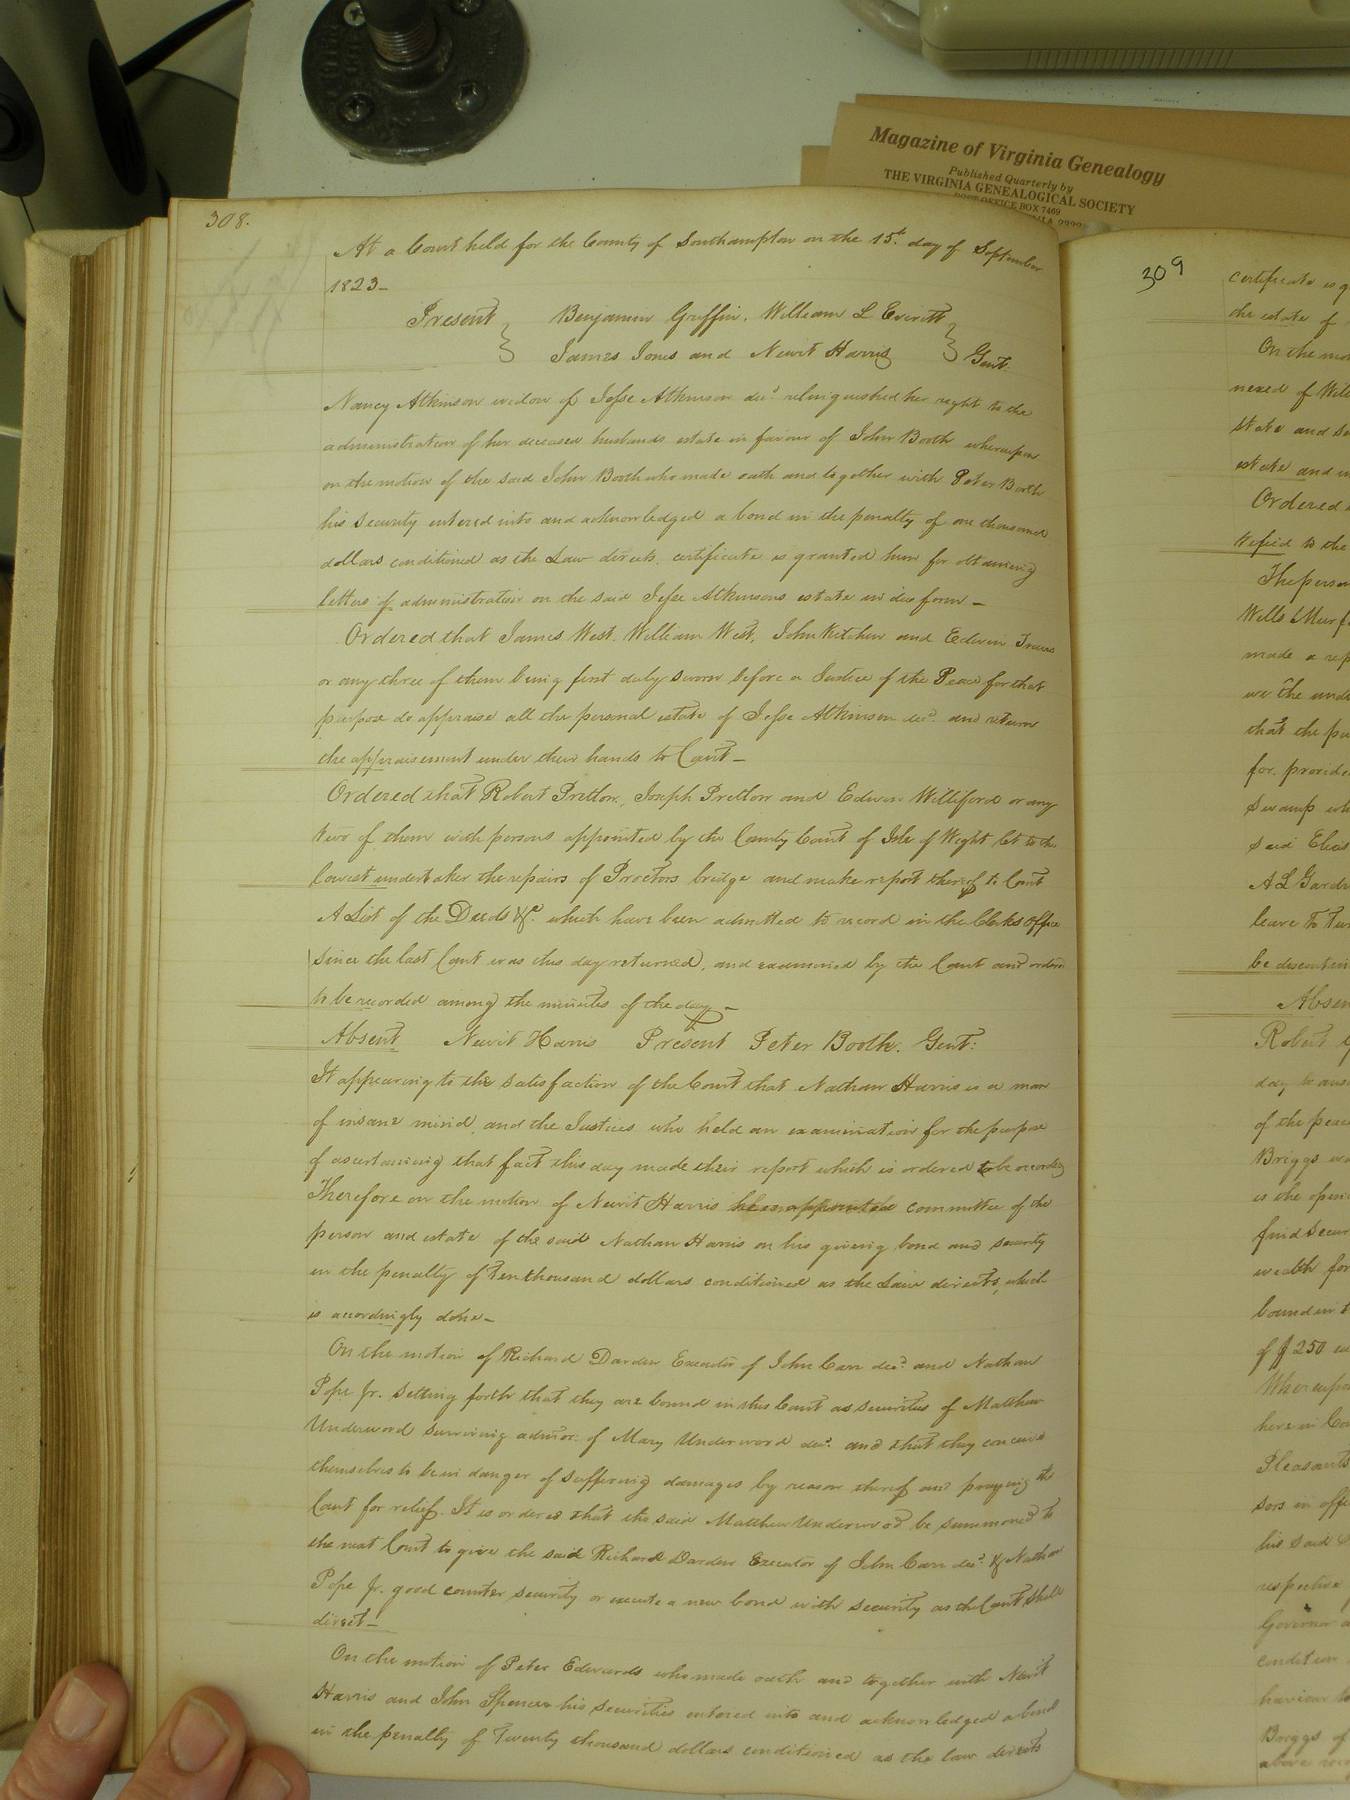 Magazine of Virginia Genealogy
Published Quarterly by
THE VIRGINIA GENEALOGICAL SOCIETY
POST OFFICE BOX 7469
308.
At a Court held for the County of Southampton on the 15th day of September
1823-
Present Benjamin Griffin, William L Everitt
James Jones and Newit Harris Gent.
Nancy Atkinson widow of Jesse Atkinson decd relinquished her right to the
administration of her deceased husbands estate in favour of John Booth whereupon
on the motion of the said John Booth who made oath and together with Peter Booth
his security entered into and acknowledged a bond in the penalty of one thousand
dollars conditioned as the Law directs, certificate is granted him for obtaining
letters of administration on the said Jesse Atkinsons estate in due form -
Ordered that James West, William West, John Kitchen and Edwin
or any three of them being first duly sworn before a Justice of the Peace for that
purpose do appraise all the personal estate of Jesse Atkinson decd. and return
the appraisement under their hands to Court -
Ordered that Robert Pretlow, Joseph Pretlow and Edwin Williford or any
two of them with persons appointed by the County Court of Isle of Wight let to the
lowest undertaker the repairs of Proctors bridge and make report thereof to Court
A List of the Deeds &c. which have been admitted to record in the Clerks Office
since the last Court was this day returned, and examined by the Court and ordered
to be recorded among the minutes of the day -
Absent Newit Harris Present Peter Booth. Gent:
It appearing to the satisfaction of the Court that Nathan Harris is a man
of insane mind, and the Justices who held an examination for the purpose
of ascertaining that fact this day made their report which is ordered to be recorded
Therefore on the motion of Newit Harris he is appointed committee of the
person and estate of the said Nathan Harris on his giving bond and security
in the penalty of Ten thousand dollars conditioned as the Law directs, which
is accordingly done -
On the motion of Richard Darden Executor of John Carr decd. and Nathan
Pope Jr. setting forth that they are bound in this Court as securities of Matthew
Underwood surviving admor. of Mary Underwood decd. and that they conceive
themselves to be in danger of suffering damages by reason thereof and praying the
Court for relief. It is ordered that the said Matthew Underwood be summoned to
the next Court to give the said Richard Darden Executor of John Carr decd. & Nathan
Pope Jr. good counter security or execute a new bond with security as the Court shall
direct -
On the motion of Peter Edwards who made oath and together with Newit
Harris and John Spencer his securities entered into and acknowledged a bond
in the penalty of Twenty thousand dollars conditioned as the law directs
309
certificate is
the estate of
On the
nexed of
state and
estate and
Ordered
tified to the
The
Wells
made a
we the
that the
for
swamp
said
A L
leave to
be
Absent
Robert
day to
of the
Briggs
is the
find
wealth for
bound in
of $250
Whereupon
here in
Pleasants
sors in
his said
respective
Governor
condition
haviour
Briggs of
above